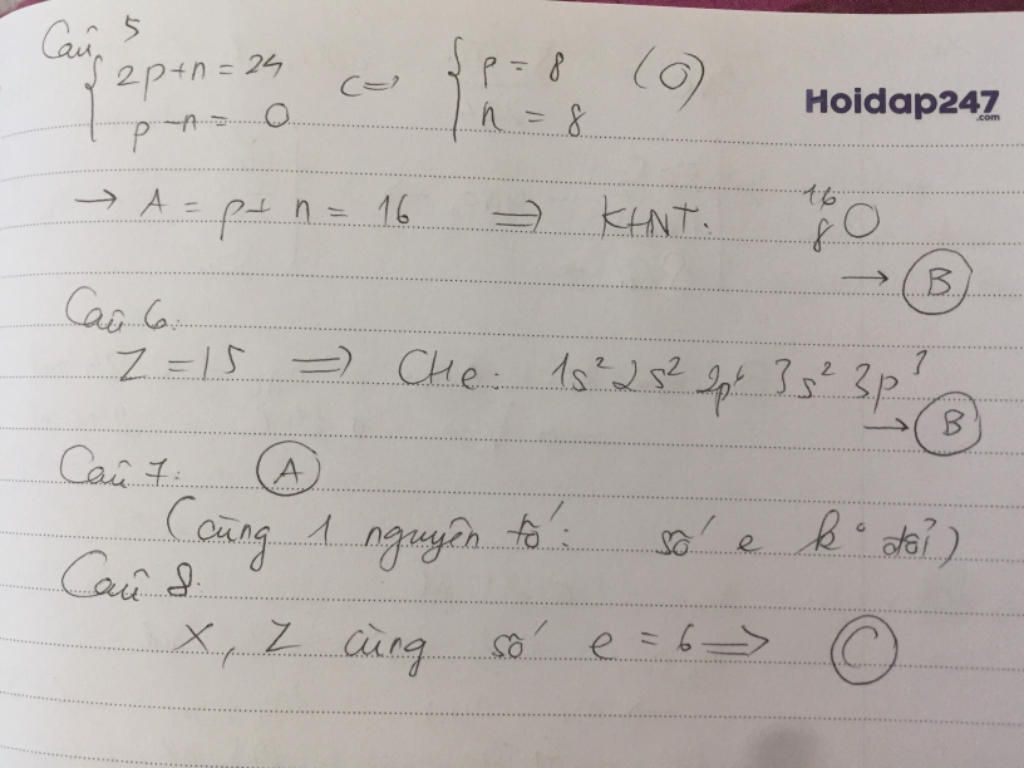 Câu 5
{ 2p+n = 24
p-n = 0
<=> { p = 8
n = 8
(O)
Hoidap247
.com
→ A = p+n = 16 ⇒ KHNT: ¹⁶₈O
→ B
Câu 6:
Z = 15 ⇒ CHe: 1s² 2s² 2p⁶ 3s² 3p³
→ B
Câu 7: A
(cùng 1 nguyên tố: số e k° đổi)
Câu 8:
X, Z cùng số e = 6 ⇒ C